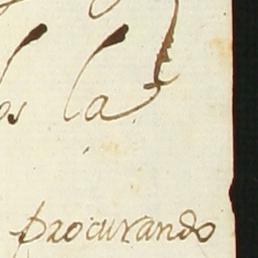 os la
procurando